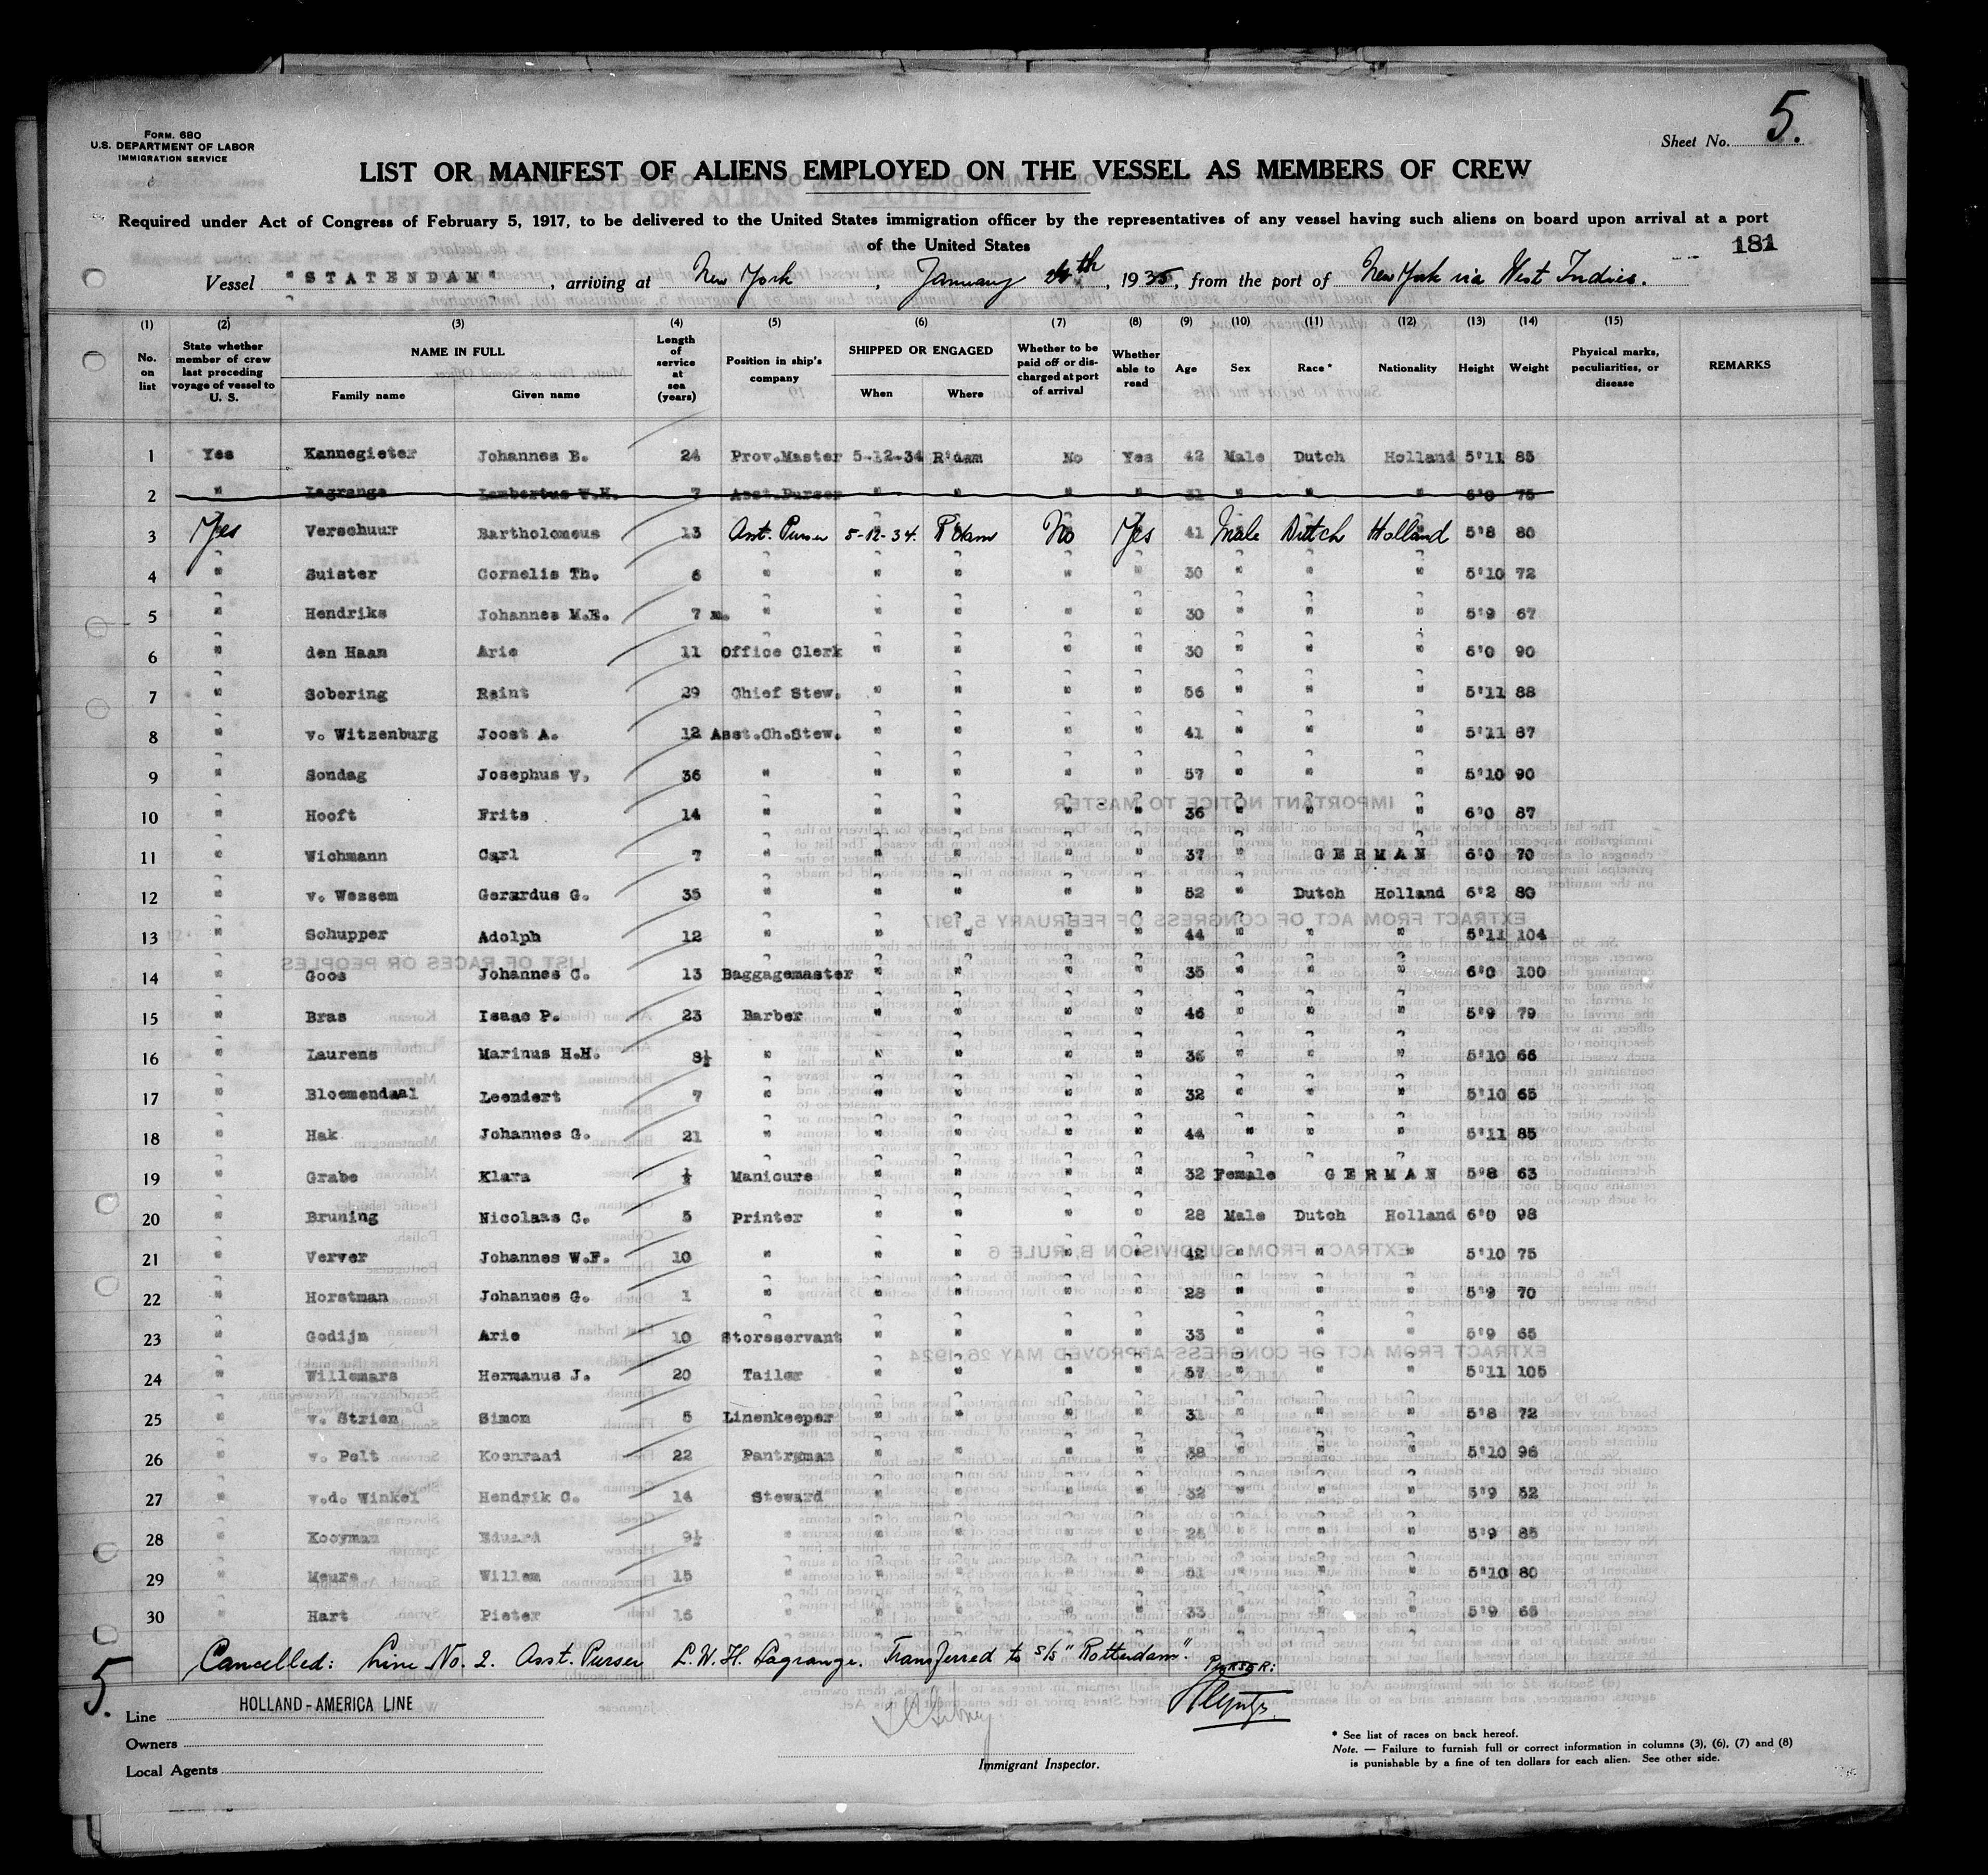 FORM. 680
U.S. DEPARTMENT OF LABOR
IMMIGRATION SERVICE
Sheet No. 5.
LIST OR MANIFEST OF ALIENS EMPLOYED ON THE VESSEL AS MEMBERS OF CREW
Required under Act of Congress of February 5, 1917, to be delivered to the United States immigration officer by the representatives of any vessel having such aliens on board upon arrival at a port
of the United States
181
Vessel "STATENDAM", arriving at New York, January th, 1935, from the port of New York via West Indies.
(1) (2) (3) (4) (5) (6) (7) (8) (9) (10) (11) (12) (13) (14) (15)
No. on list State whether member of crew last preceding voyage of vessel to U. S. NAME IN FULL Family name Given name Length of service at sea (years) Position in ship's company SHIPPED OR ENGAGED When Where Whether to be paid off or discharged at port of arrival Whether able to read Age Sex Race * Nationality Height Weight Physical marks, peculiarities, or disease REMARKS
1 Yes Kannegieter Johannes B. 24 Prov.Master 5-12-34 R'dam No Yes 42 Male Dutch Holland 5'11 85
2 " Lagrange Lambertus W.H. 7 Asst.Purser " " " " 31 " " " 6'0 75
3 Yes Verschuur Bartholomeus 13 Asst. Purser 5-12-34. R'dam No Yes 41 Male Dutch Holland 5'8 80
4 " Suister Cornelis Th. 6 " " " " " 30 " " " 5'10 72
5 " Hendriks Johannes M.E. 7 m. " " " " " 30 " " " 5'9 67
6 " den Haan Arie 11 Office Clerk " " " " 30 " " " 6'0 90
7 " Sobering Reint 29 Chief Stew. " " " " 56 " " " 5'11 88
8 " v. Witzenburg Joost A. 12 Asst.Ch.Stew. " " " " 41 " " " 5'11 87
9 " Sondag Josephus V. 36 " " " " " 57 " " " 5'10 90
10 " Hooft Frits 14 " " " " " 36 " " " 6'0 87
11 " Wichmann Carl 7 " " " " " 37 " GERMAN 6'0 70
12 " v. Wessem Gerardus G. 35 " " " " " 52 " Dutch Holland 6'2 80
13 " Schupper Adolph 12 " " " " " 44 " " " 5'11 104
14 " Goos Johannes C. 13 Baggagemaster " " " " 35 " " " 6'0 100
15 " Bras Isaac P. 23 Barber " " " " 46 " " " 5'9 79
16 " Laurens Marinus H.H. 8½ " " " " " 36 " " " 5'10 66
17 " Bloemendaal Leendert 7 " " " " " 32 " " " 5'10 65
18 " Hak Johannes G. 21 " " " " " 44 " " " 5'11 85
19 " Grabe Klara ½ Manicure " " " " 32 Female GERMAN 5'8 63
20 " Bruning Nicolaas C. 5 Printer " " " " 28 Male Dutch Holland 6'0 98
21 " Verver Johannes W.F. 10 " " " " " 42 " " " 5'10 75
22 " Horstman Johannes G. 1 " " " " " 28 " " " 5'9 70
23 " Godijn Arie 10 Storeservant " " " " 33 " " " 5'9 65
24 " Willemars Hermanus J. 20 Tailor " " " " 57 " " " 5'11 105
25 " v. Strien Simon 5 Linenkeeper " " " " 31 " " " 5'8 72
26 " v. Pelt Koenraad 22 Pantryman " " " " 38 " " " 5'10 96
27 " v.d. Winkel Hendrik C. 14 Steward " " " " 32 " " " 5'9 52
28 " Kooyman Eduard 9½ " " " " " 26 " " " 5'9 85
29 " Meurs Willem 15 " " " " " 31 " " " 5'10 80
30 " Hart Pieter 16 " " " " " 33 " " " 5'9 65
Cancelled: Line No. 2. Asst. Purser L.W.H. Lagrange. Transferred to s/s "Rotterdam".
PURSER:
5.
Line HOLLAND-AMERICA LINE
Owners
Local Agents
Immigrant Inspector.
* See list of races on back hereof.
Note. — Failure to furnish full or correct information in columns (3), (6), (7) and (8)
is punishable by a fine of ten dollars for each alien. See other side.